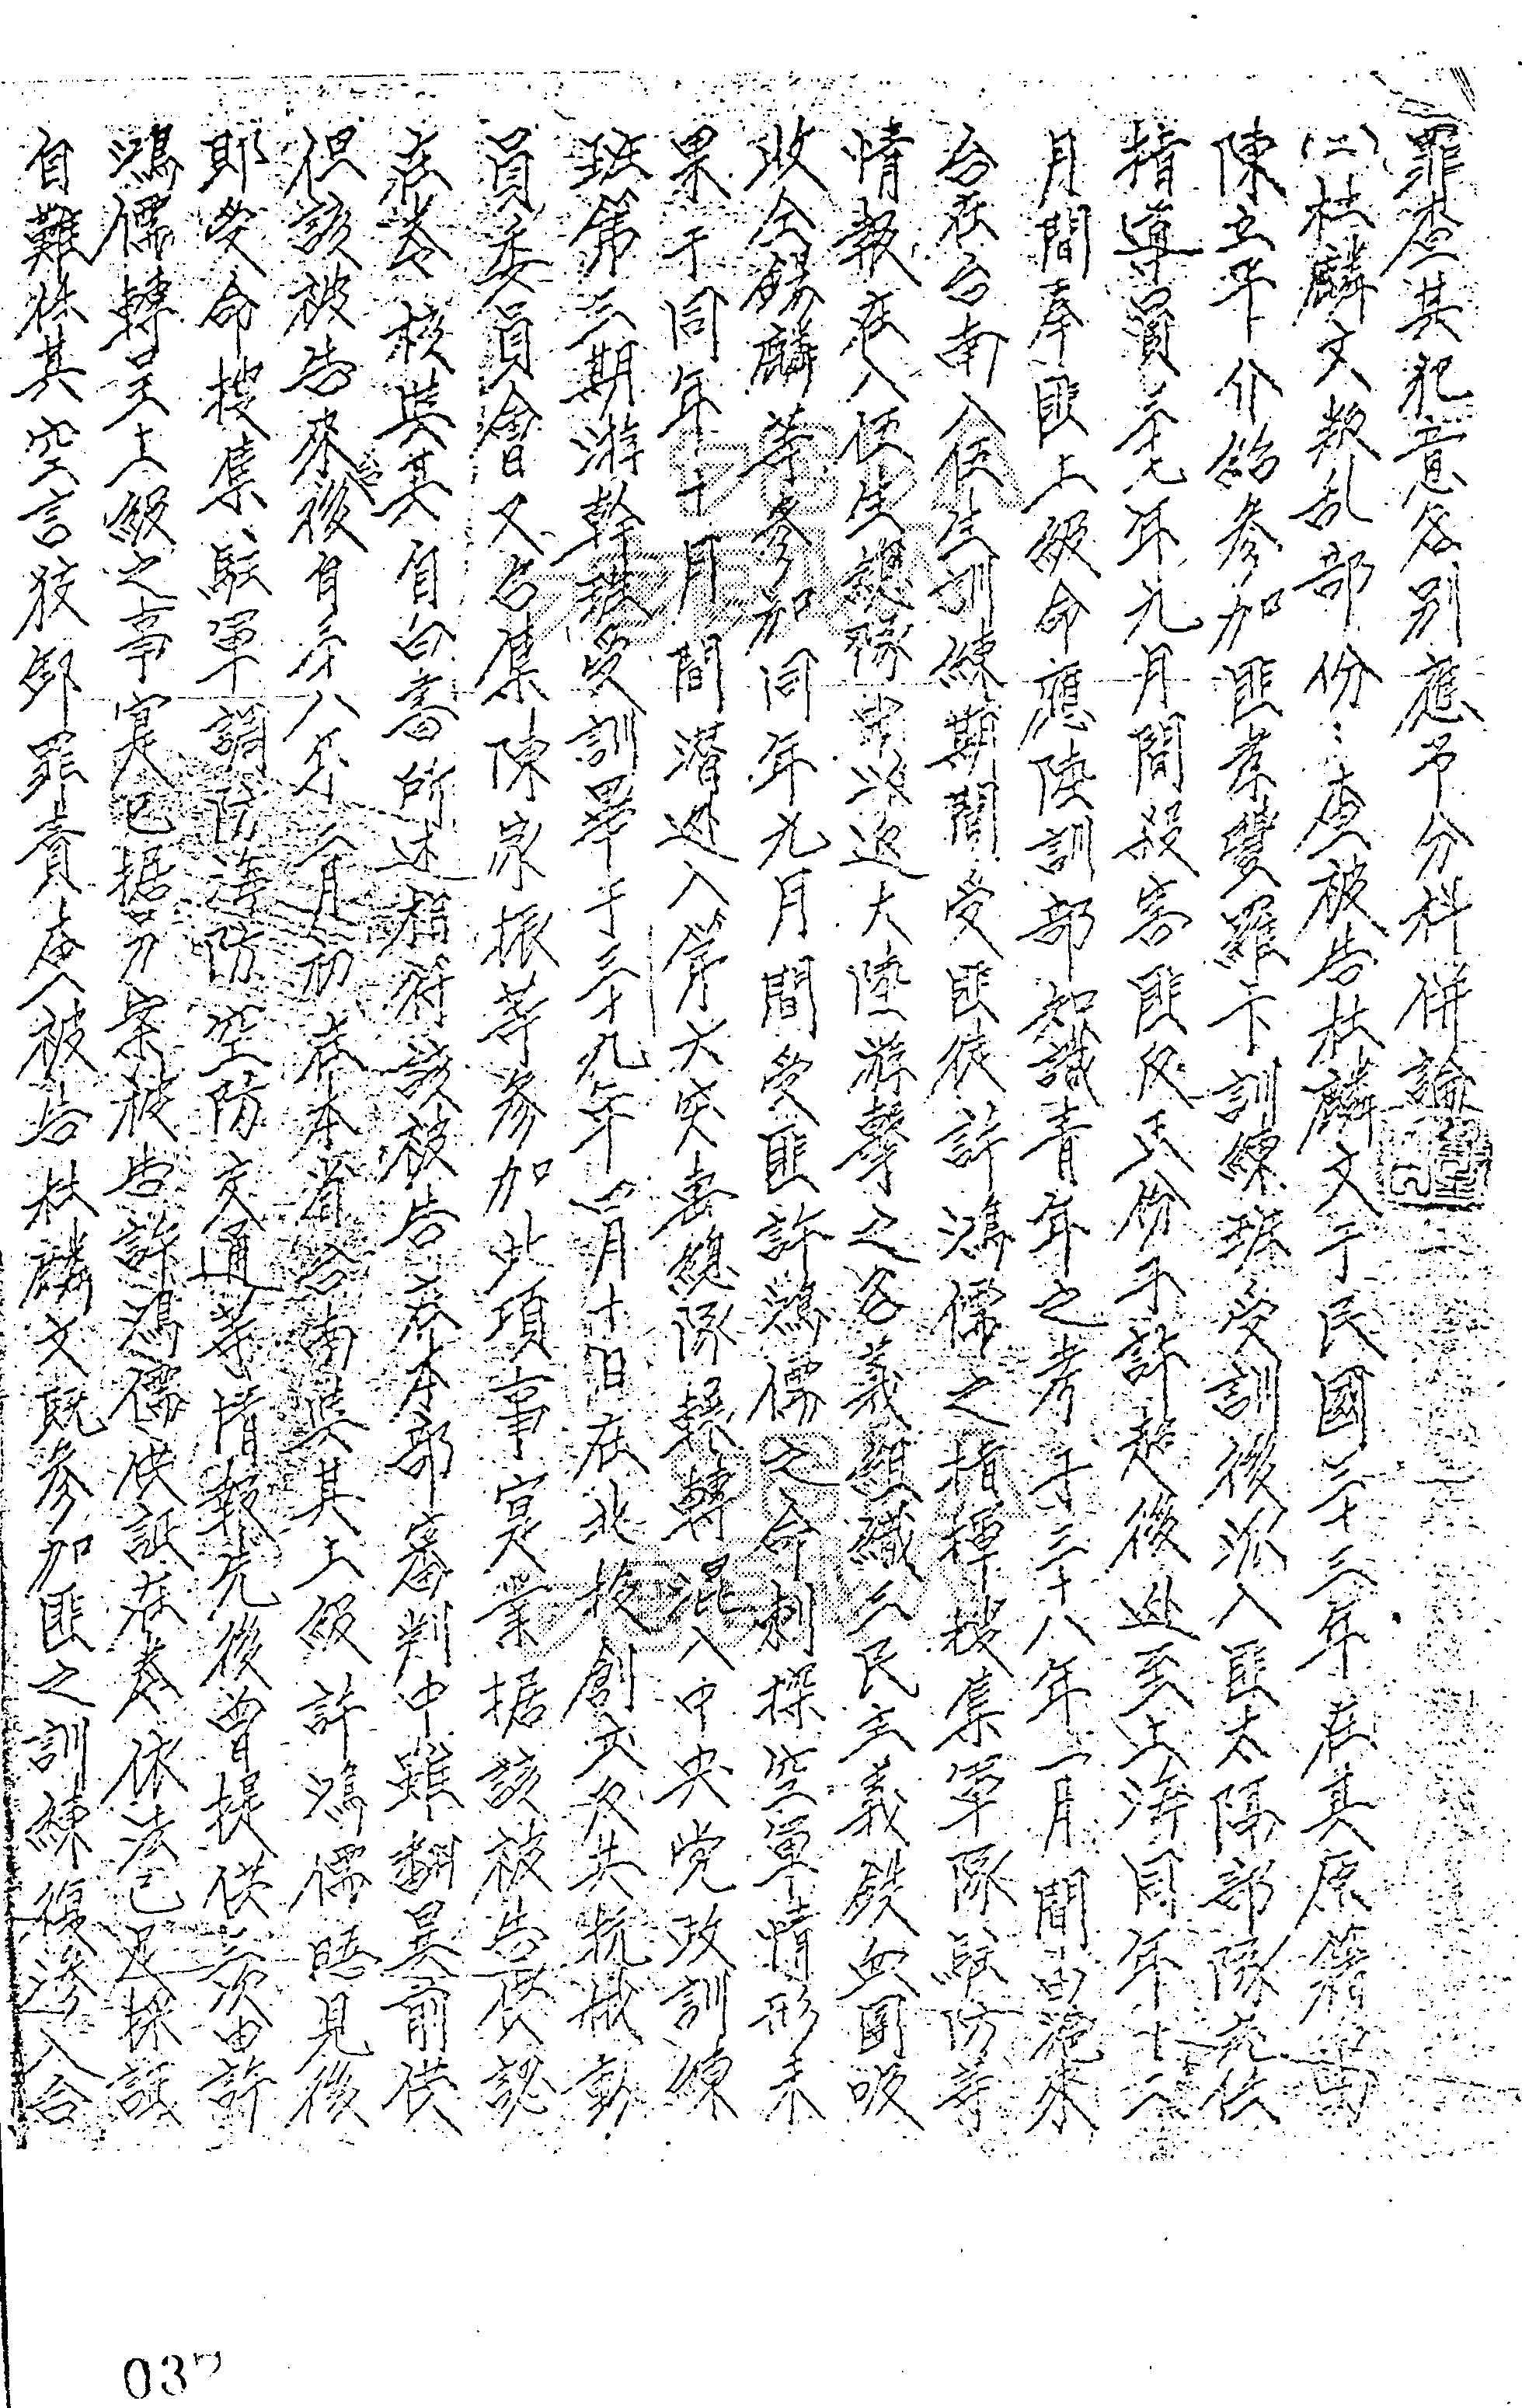 罪查其犯意各別應予分科併論
(二)杜麟文叛乱部份：查被告杜麟文于民國三十三年在其原籍由
陳立平介紹參加匪羊雙羅卡訓練班受訓後派入匪太陽部隊充任
指導員三十七年九月間殺害匪反民份子許超後逃至上海同年十二
月間奉匪上級命應陸訓部知識青年之考于三十八年一月間由滬來
台在台南入伍生訓練期間受匪徒許鴻儒之指揮搜集軍隊駐防等
情報在入伍生總隊常以返大陸游擊之名義組織三民主義鉄血團吸
收全錫麟等參加同年九月間受匪許鴻儒之命刺探空軍情形未
果于同年十月間潛逃入岸大突击總隊輾轉混入中央党政訓練
班第三期游幹班受訓畢于三十九年四月十日在北投創立反共抗俄動
員委員會又召集陳家振等參加此項事實業据該被告供認
在卷核與其自白書所述相符該被告在本部審判中雖翻異前供
但該被告來台後自三十八年八月初在本省台南與其上級許鴻儒晤見後
即受命搜集駐軍調防海防空防交通等情報先後曾提供三次由許
鴻儒轉呈上級之事實已据另案被告許鴻儒供証在卷依法已足採証
自難任其空言狡卸罪責查被告杜麟文既參加匪之訓練復滲入台
037